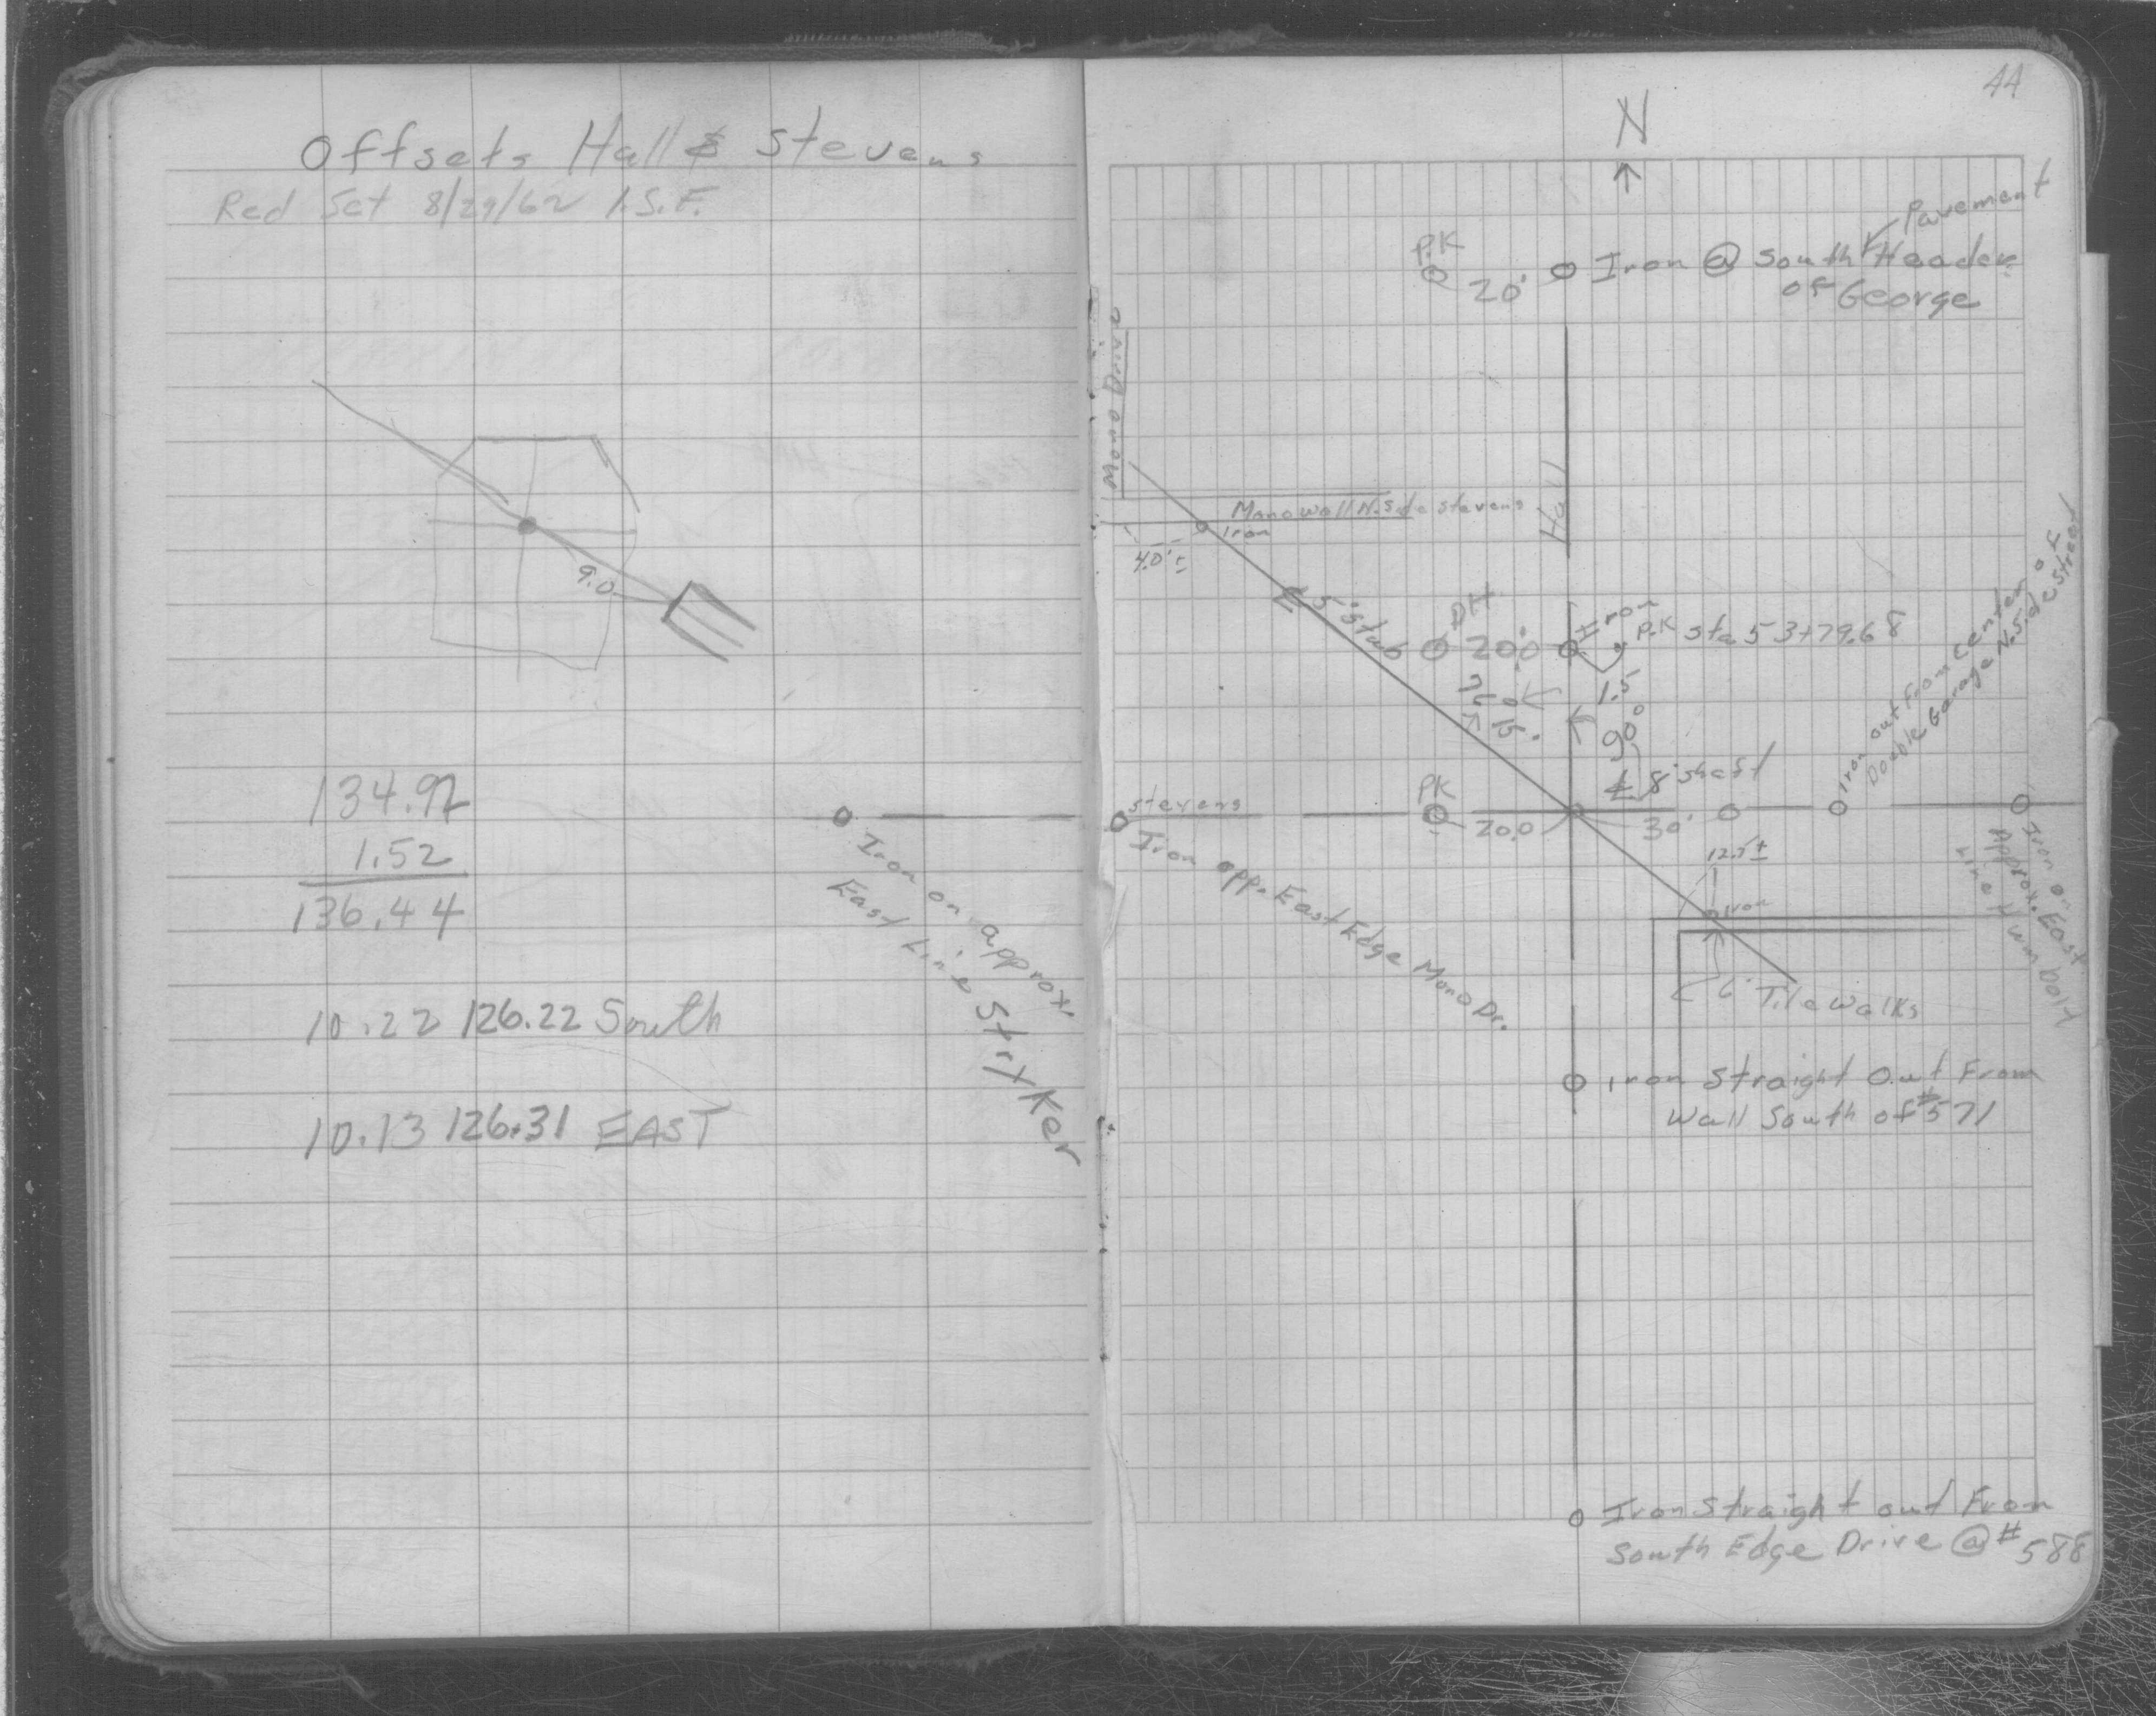 Offsets Hall & Stevens
Red Set 8/29/62 I.S.F.
9.0
134.92
1.52
136.44
10.22 126.22 South
10.13 126.31 EAST
Iron on approx.
East Line Stryker
44
N
Pavement
P.K
20' Iron @ South Header
of George
Mono Drive
Mono wall N. Side Stevens
Iron
4.0' ±
Hall
5' Stub
PK
20.0
Iron
P.K Sta 53+79.68
1.5
90°
8' shaft
Iron out From Center of
Double Garage N. Side Street
Stevens
PK
20.0
30'
Iron opp. East Edge Mono Dr.
12.5 ±
Iron
Iron on
Approx. East
Line Humbolt
6" Tile Walks
Iron Straight Out From
Wall South of #571
Iron Straight out From
South Edge Drive @ #588